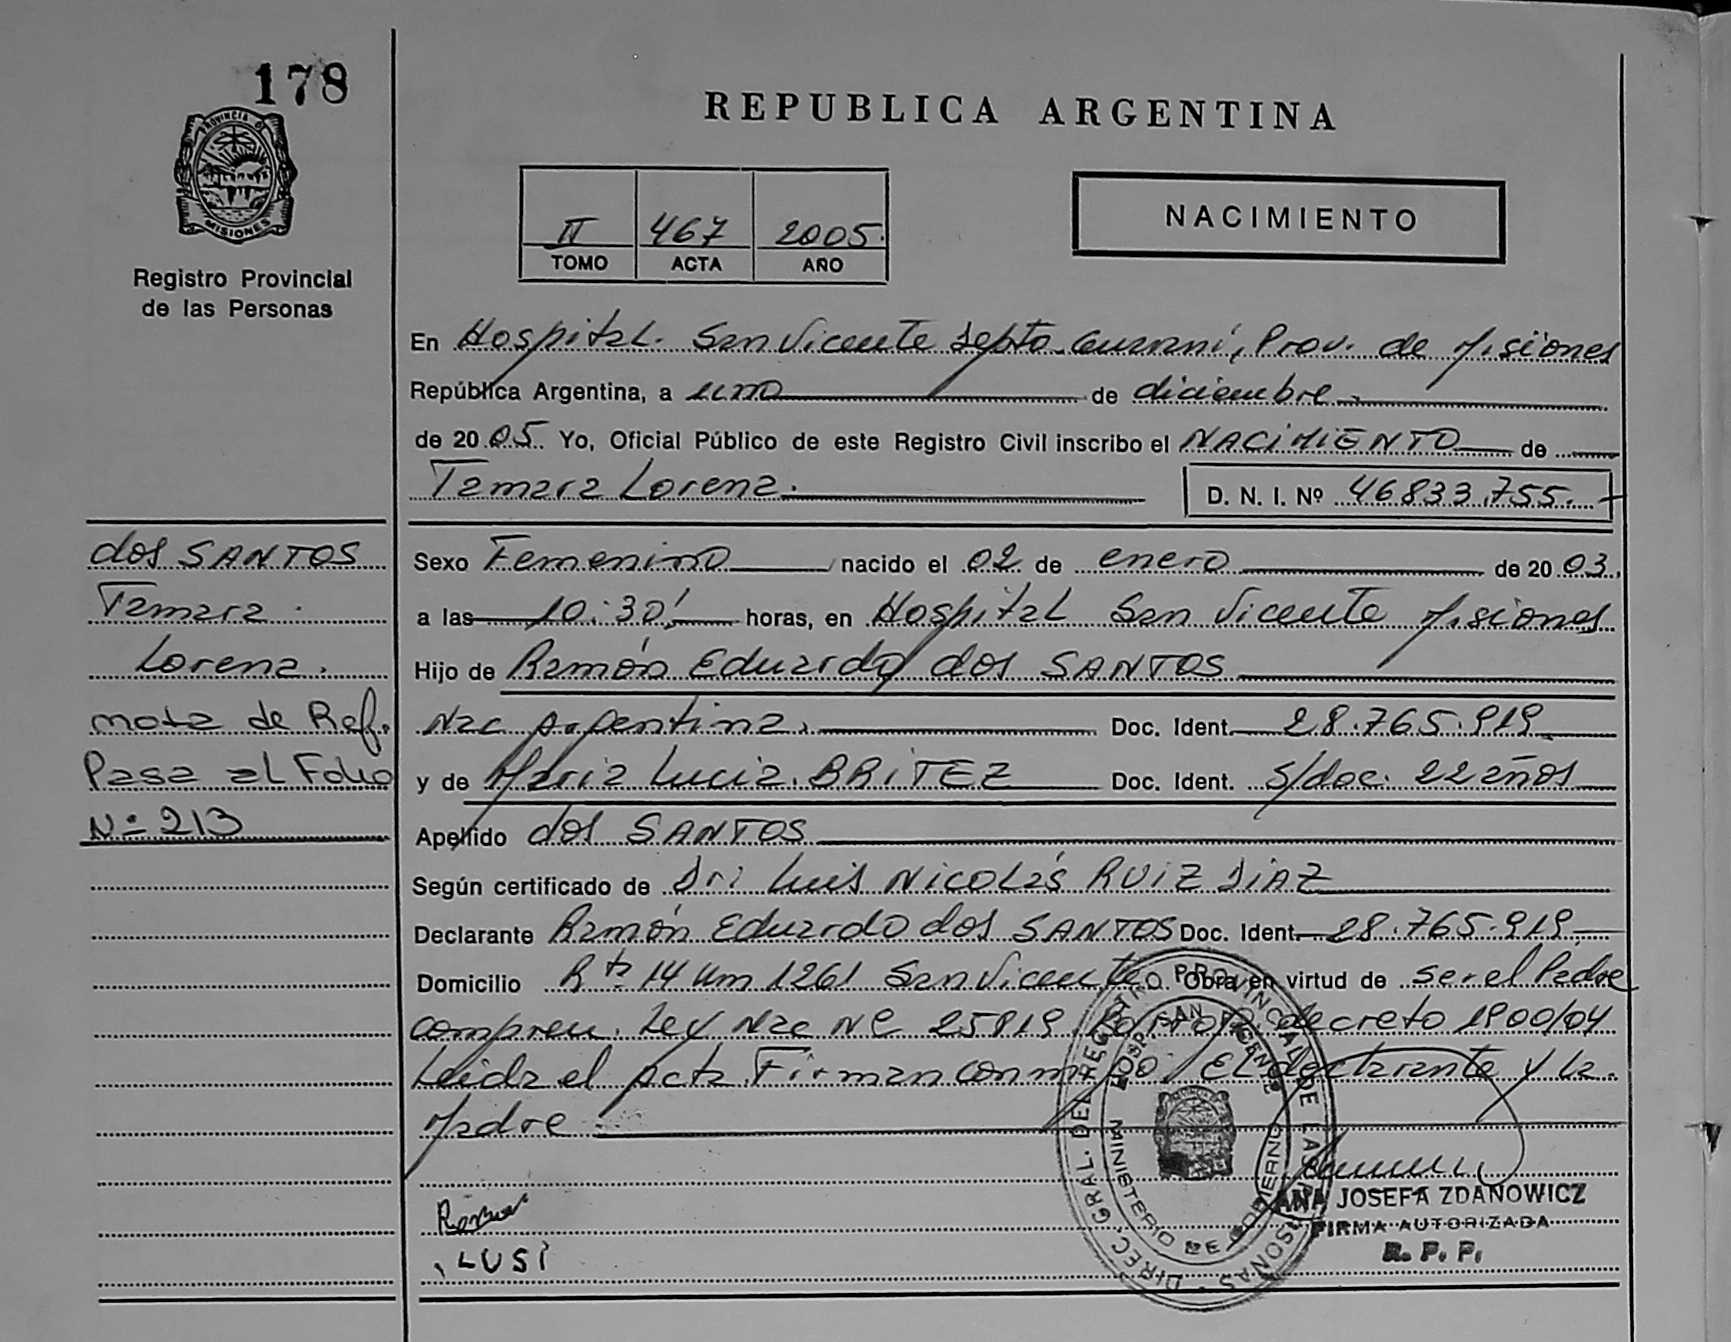 178
PROVINCIA D
MISIONES
Registro Provincial
de las Personas
REPUBLICA ARGENTINA
II 467 2005.
TOMO ACTA AÑO
NACIMIENTO
En Hospital. San Vicente Depto. Guaraní, Prov. de Misiones
República Argentina, a uno de diciembre
de 2005. Yo, Oficial Público de este Registro Civil inscribo el NACIMIENTO de
Tamara Lorena.
D. N. I. Nº 46833.755.
dos SANTOS
Tamara.
Lorena.
nota de Ref.
Pasa al Folio
Nº 213
Sexo Femenino nacido el 02 de enero de 2003.
a las 10:30' horas, en Hospital San Vicente Misiones
Hijo de Ramón Eduardo dos SANTOS
Nac Argentina. Doc. Ident. 28.765.919
y de María Lucia. BRITEZ Doc. Ident. S/doc. 22 años
Apellido dos SANTOS
Según certificado de Dr: Luis Nicolás RUIZ DIAZ
Declarante Ramón Eduardo dos SANTOS Doc. Ident. 28.765.919.
Domicilio Rta 14 Km 1261 San Vicente. Obra en virtud de ser el Padre
compren. Ley Nac Nº 25819 decreto 1900/04
Leida el acta Firman conmigo, El declarante y la.
Madre
Ramon
LUSI
DIREC. GRAL. DEL REGISTRO PROVINCIAL DE LAS PERSONAS
HOSP. SAN VICENTE
MINISTERIO DE GOBIERNO
ANA JOSEFA ZDANOWICZ
FIRMA AUTORIZADA
R. P. P.